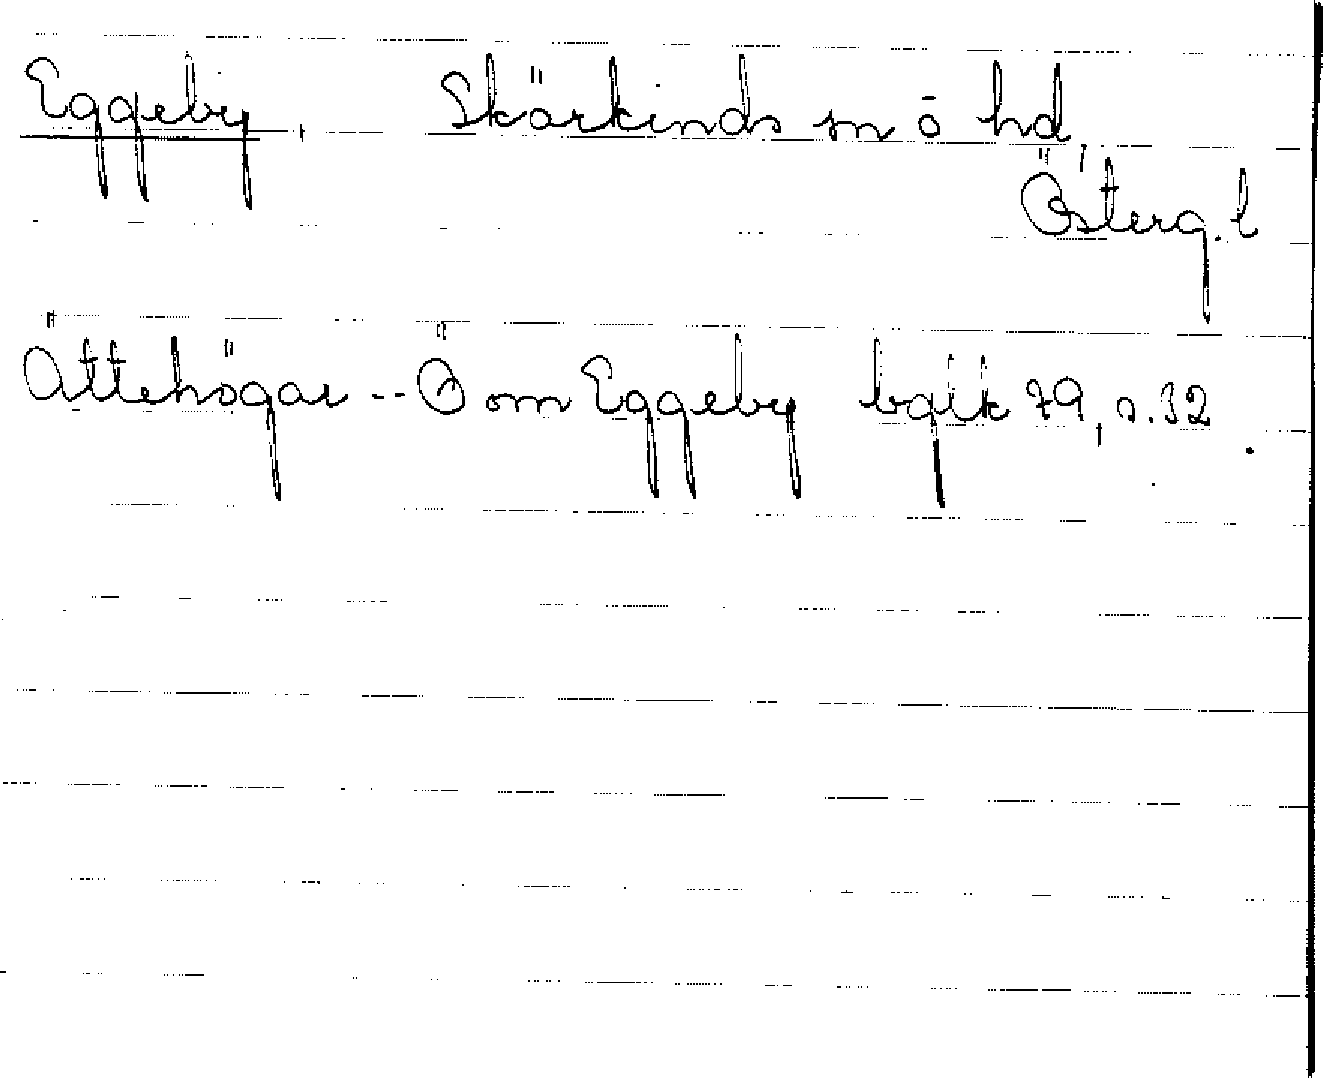 Eggeby, Skärkinds sn ō hd,
Österg. l
Ättehögar -- Ö om Eggeby bglk 79, s. 32.